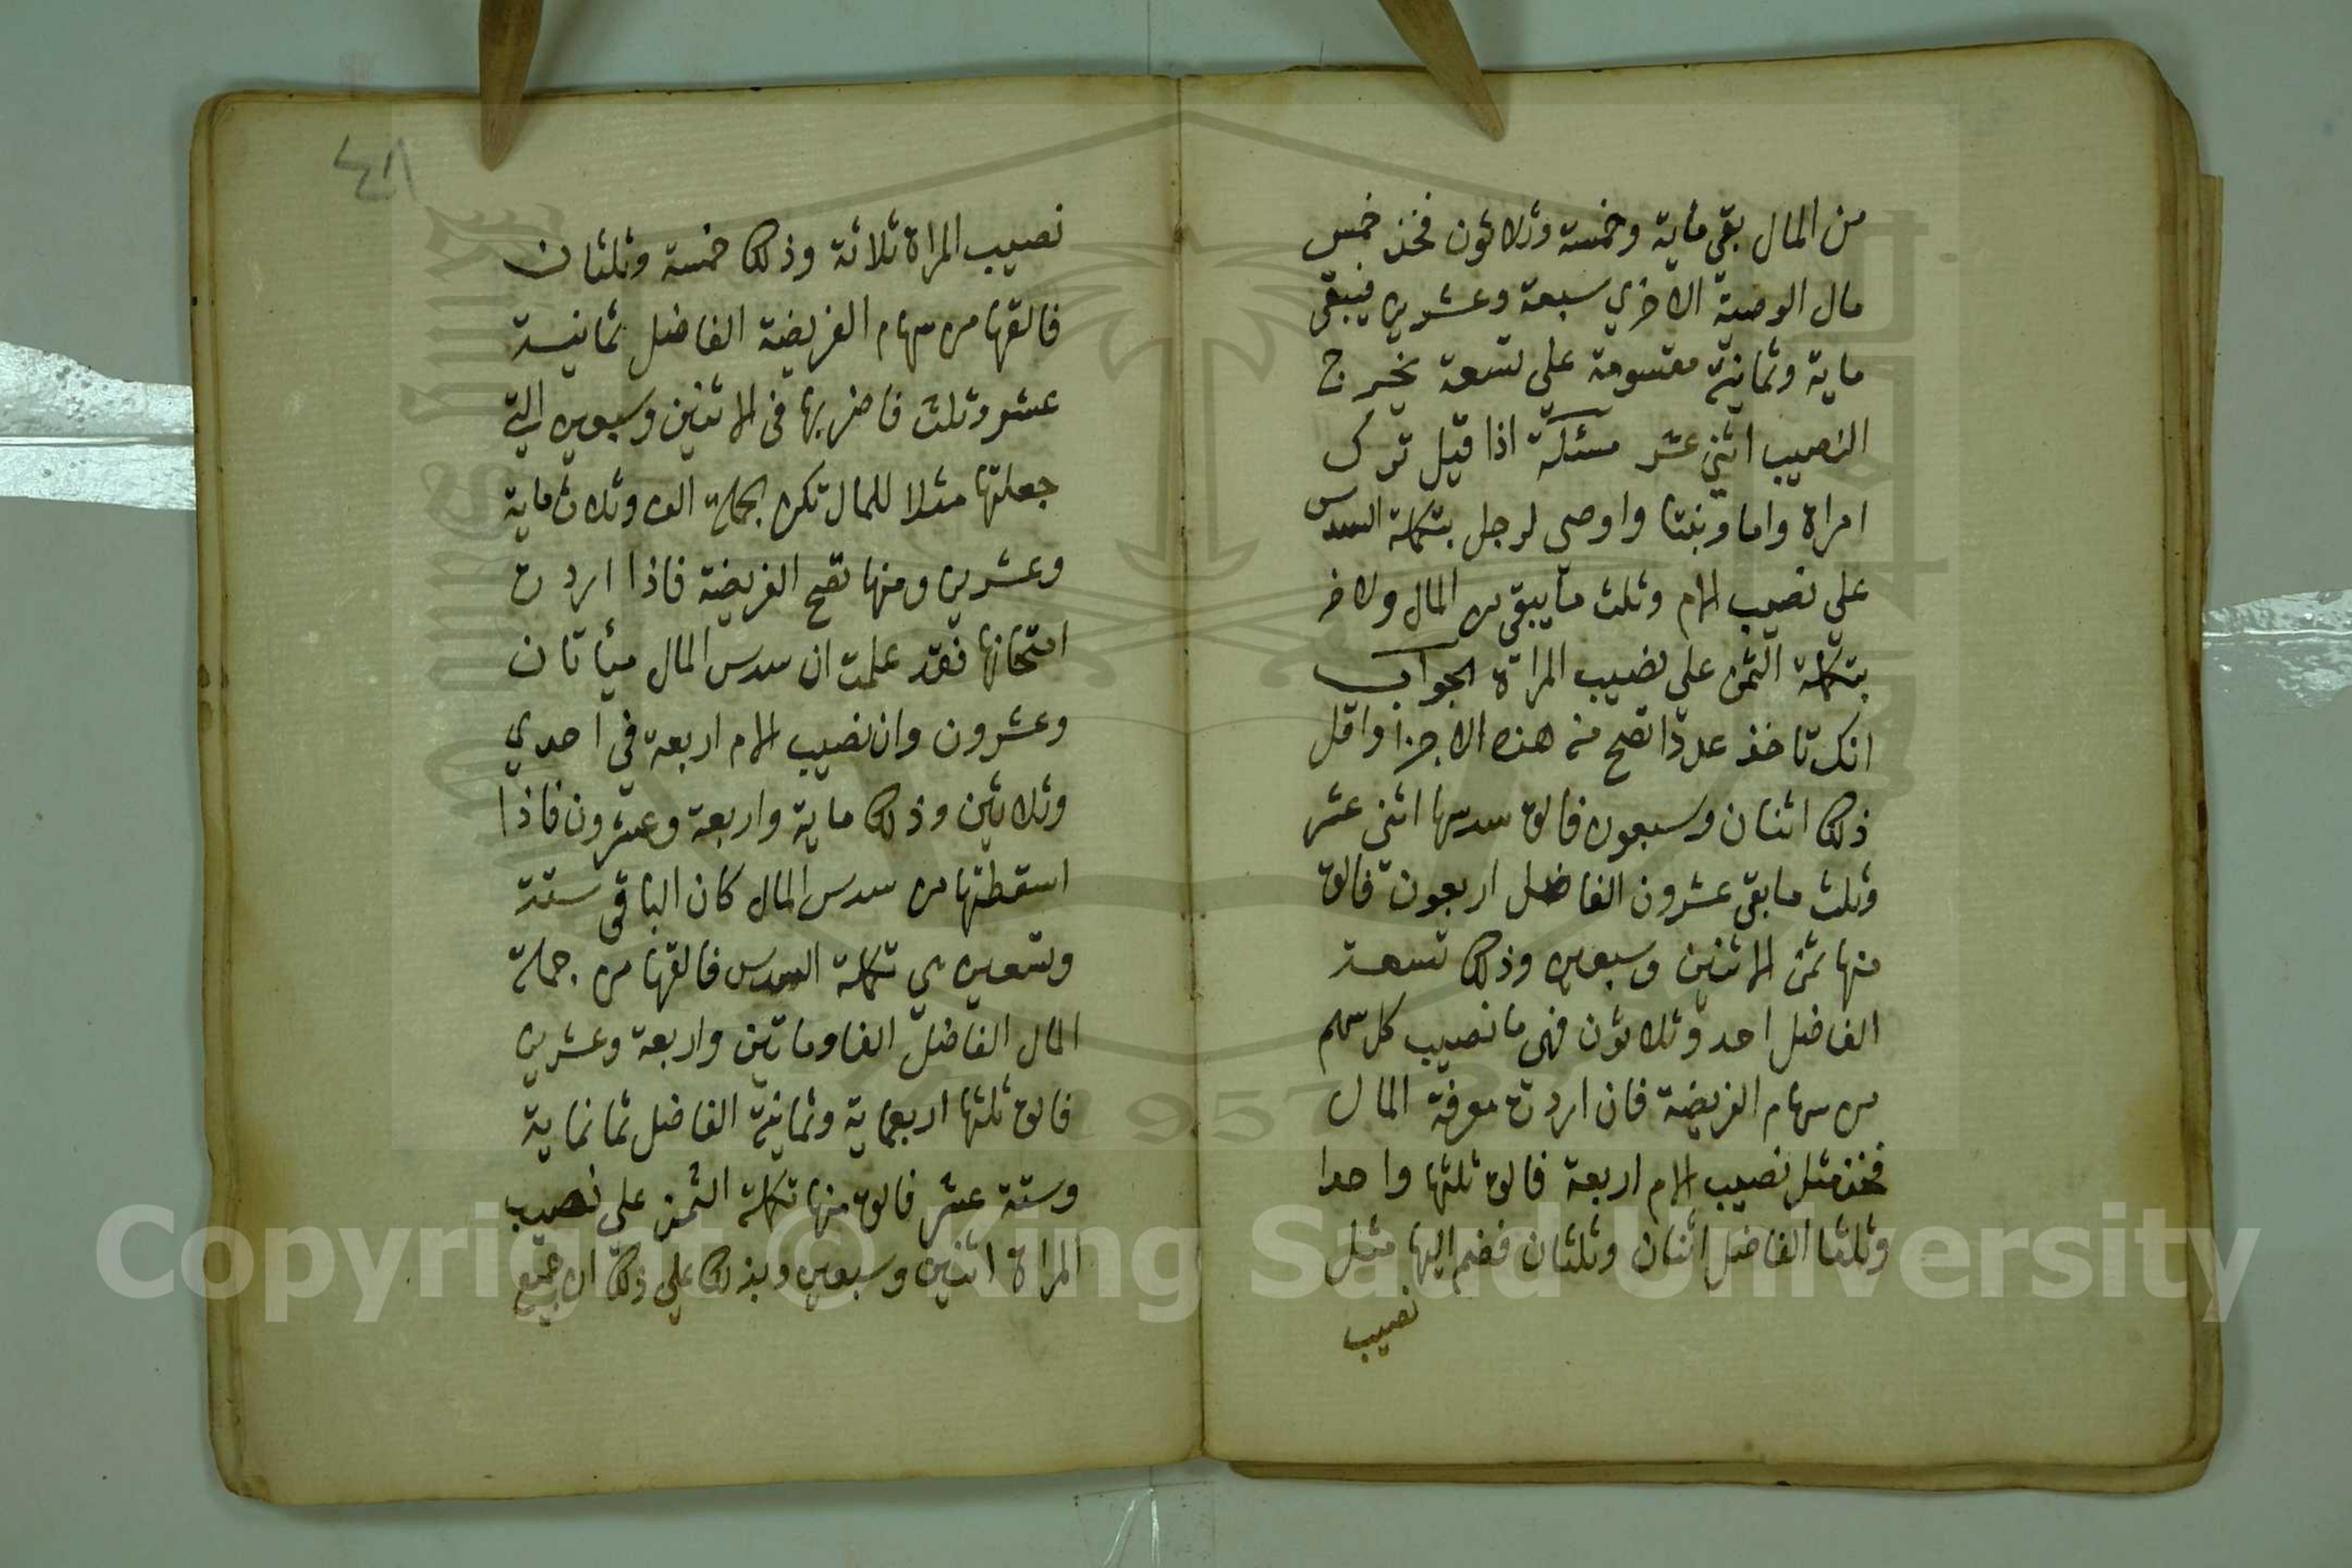 من المال بقي ماية وخمسة وثلاثون فخذ خمس
مال الوصية الاخري سبعة وعشرين فيبقي
ماية وثمانية مقسومة علي تسعة يخرج
النصيب اثني عشر مسئلة اذا قيل ترك
امراة واما وبنتا واوصي لرجل بتكملة السدس
علي نصيب الام وثلث ما يبقي من المال ولاخر
بتكملة الثمن علي نصيب المراة الجواب
انك تاخذ عددا تصح منه هذه الاجزا واقل
ذلك اثنان وسبعون فالق سدسها اثني عشر
وثلث ما بقي عشرون الفاضل اربعون فالق
منها ثمن الاثنين وسبعين وذلك تسعة
الفاضل احد وثلاثون فهي ما نصيب كل سهم
من سهام الفريضة فان اردت معرفة المال
فخذ مثل نصيب الام اربعة فالق ثلثها واحدا
وثلثا الفاضل اثنان وثلثان فضم اليها مثل
نصيب
٤٨
نصيب المراة ثلاثة وذلك خمسة وثلثان
فالقها من سهام الفريضة الفاضل ثمانية
عشر وثلث فاضربها في الاثنين وسبعين التي
جعلتها مثلا للمال تكن الجملة الف وثلاث ماية
وعشرين ومنها تصح الفريضة فاذا اردت
امتحانها فقد علمت ان سدس المال ميأتان
وعشرون وان نصيب الام اربعة في احدي
وثلاثين وذلك ماية واربعة وعشرون فاذا
اسقطتها من سدس المال كان الباقي ستة
وتسعين هي تكملة السدس فالقها من جملة
المال الفاضل الفا وماتين واربعة وعشرين
فالق ثلثها اربعماية وثمانية الفاضل ثمانماية
وستة عشر فالق منها تكملة الثمن علي نصيب
المراة اثنين وسبعين وبذلك علي ذلك ان جميع
Copyright © King Saud University
1957